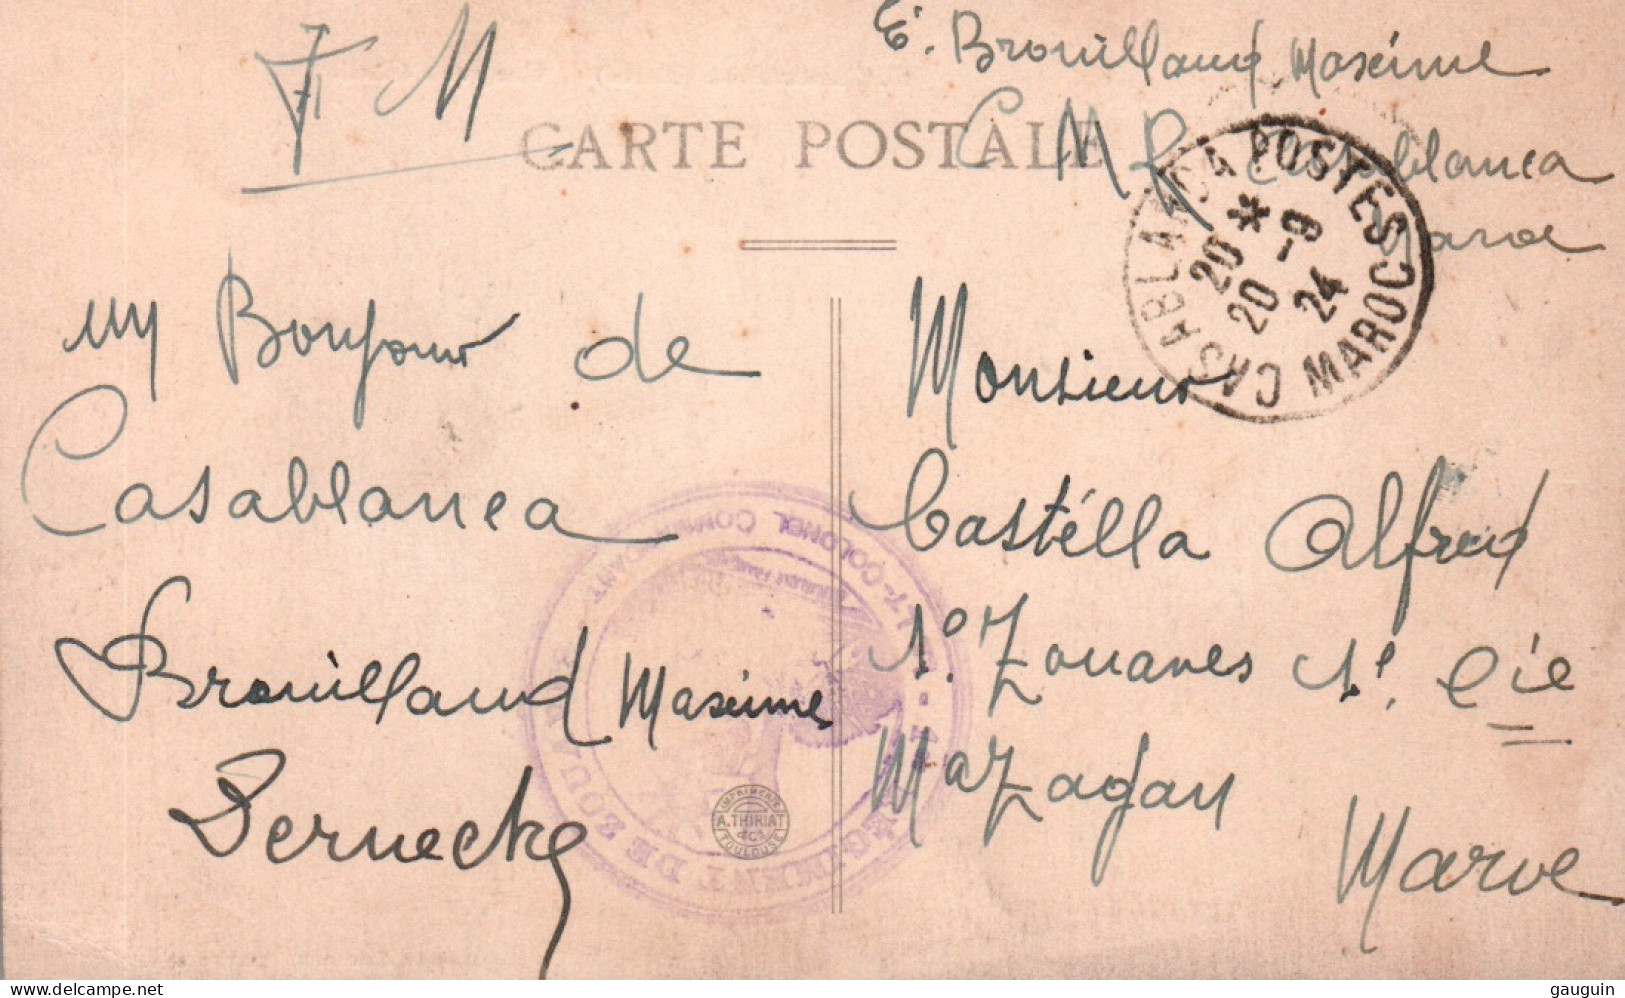 FM
E. Brouilland Maxime
CARTE POSTALE
C M R Casablanca
Maroc
CASABLANCA POSTES
20 * 20 -9 24
MAROC
un Bonjour de
Casablanca
Brouilland Maxime
Bernecke
Monsieur
Castélla Alfred
1º Zouaves 1e. Cie
Mazagan
Maroc
LT-COLONEL COMMANDANT
RÉGIMENT DE ZOUAVES
IMPRIMERIE
A. THIRIAT
& Cie
TOULOUSE
delcampe.net
gauguin